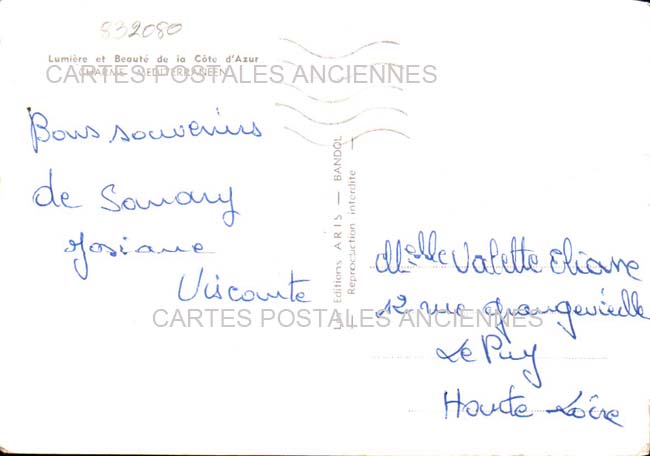 832080
Lumière et Beauté de la Côte d'Azur
CHARME MEDITERRANEEN
CARTES POSTALES ANCIENNES
Bons souvenirs
de Sanary
Josiane
Viscomte
Les Editions ARIS — BANDOL
Reproduction interdite —
Melle Valette Eliane
12 rue grangevieille
Le Puy
Haute-Loire
CARTES POSTALES ANCIENNES